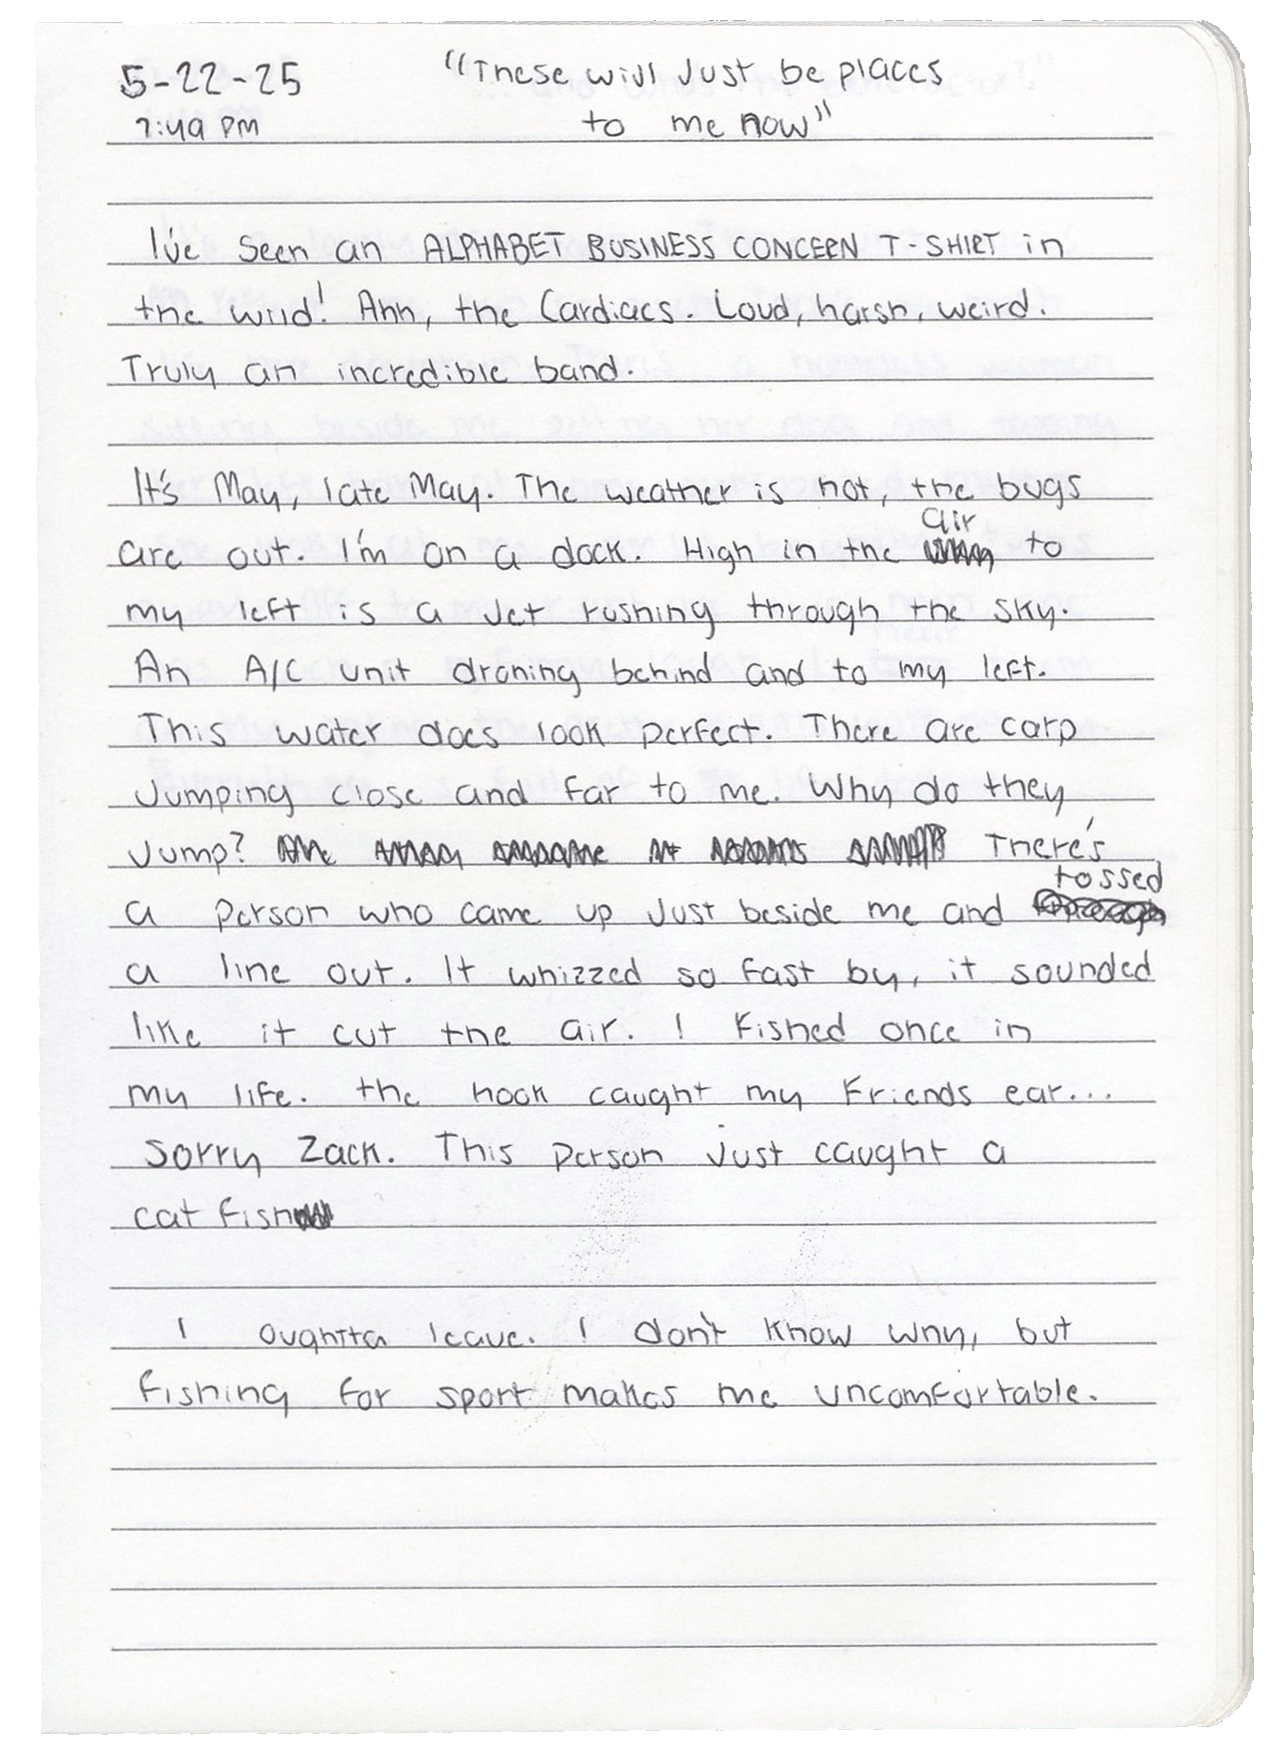 5-22-25 "These will Just be places
7:49 PM to me now"
I've seen an ALPHABET BUSINESS CONCERN T-SHIRT in
the wild! Ahh, the Cardiacs. Loud, harsh, weird.
Truly an incredible band.
It's May, late May. The weather is hot, the bugs
are out. I'm on a dock. High in the air to
my left is a Jet rushing through the sky.
An A/C unit droning behind and to my left.
This water does look perfect. There are carp
Jumping close and far to me. Why do they
Jump? There's
a person who came up Just beside me and tossed
a line out. It whizzed so fast by, it sounded
like it cut the air. I Fished once in
my life. the hook caught my Friends ear...
Sorry Zack. This person just caught a
cat fish
I oughtta leave. I don't know why, but
fishing for sport makes me uncomfortable.